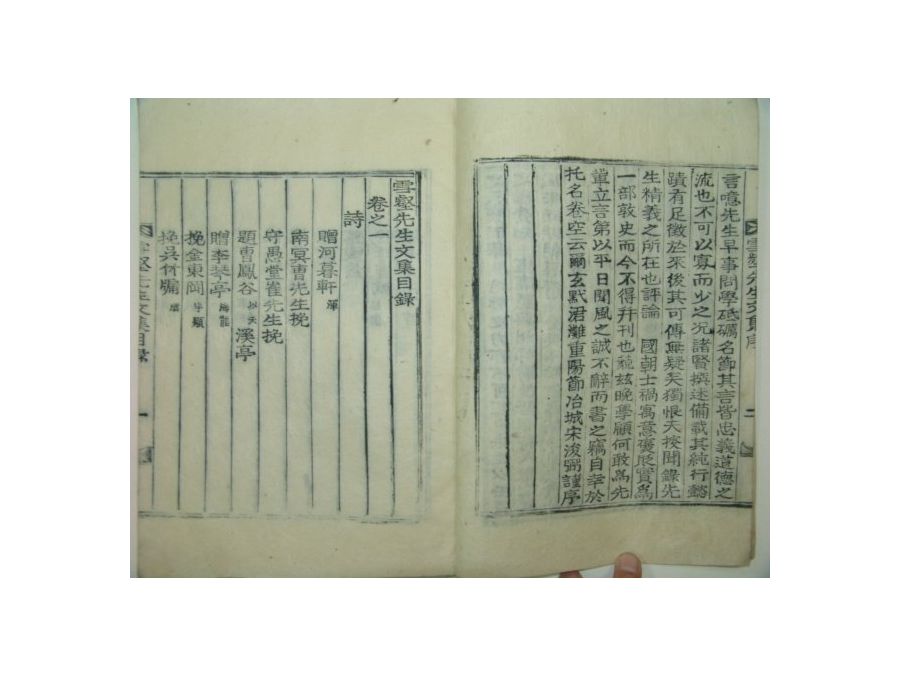 言噫先生早事問學砥礪名節其言皆忠義道德之
流也不可以寡而少之况諸賢撰述備載其純行懿
蹟有足徵於來後其可傳無疑矣獨恨天挍聞錄先
生精義之所在也評論 國朝士禍寓意褒貶實爲
一部敦史而今不得幷刊也窺玆晚學顧何敢爲先
輩立言第以平日聞風之誠不辭而書之竊自幸於
托名卷空云爾玄黓涒灘重陽節冶城宋浚弼謹序
雪壑先生文集序
二
雪壑先生文集目錄
卷之一
詩
贈河暮軒 渾
南冥曺先生挽
守愚堂崔先生挽
題曺鳳谷 以天 溪亭
贈李琴亭
挽金東岡 宇顒
挽吳竹牖 澐
雪壑先生文集目錄
一